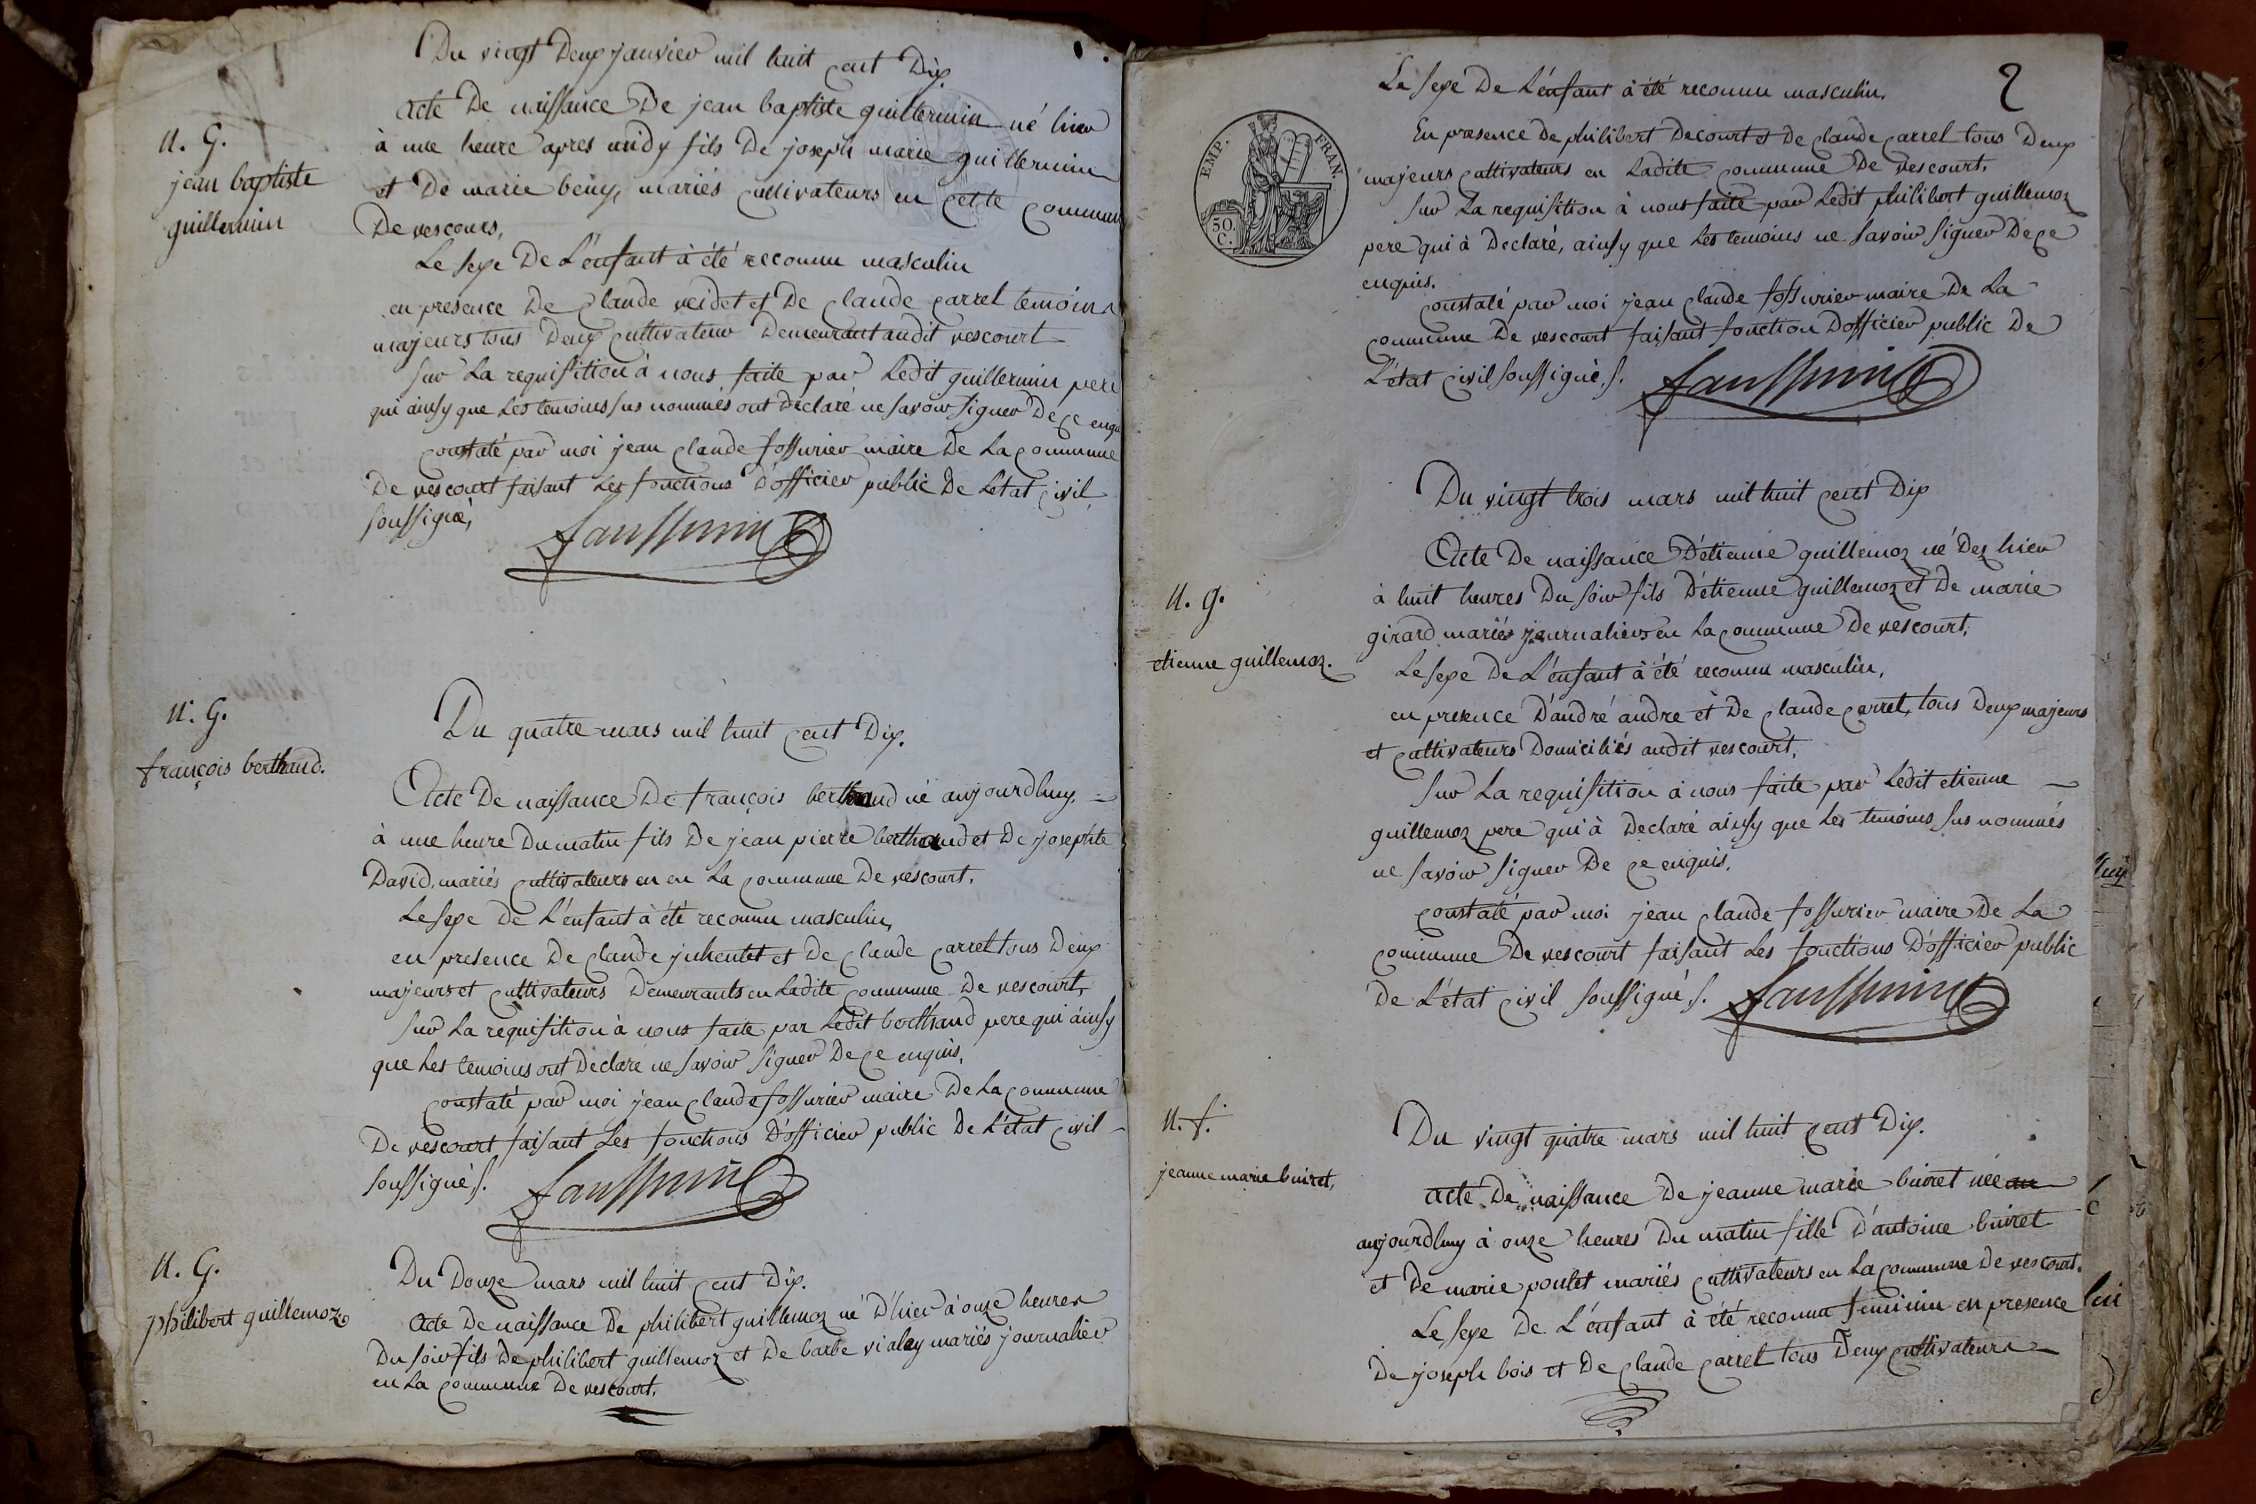 Du vingt Deux janvier mil huit cent Dix
N. G.
jean baptiste
guillermin
acte De naissance De jean baptiste guillermin né hier
à une heure apres midy fils De joseph marie guillermin
et De marie beuy, mariés cultivateurs en cette commune
De vescours,
Le sexe De L'énfant à été reconnu masculin
en presence De Claude veidet et De Claude carrel temoins
majeurs tous Deux cultivateur Demeurant audit vescourt
sur La requisition à nous faite par Ledit guillermin pere
qui ainsy que Les temoins sus nommés ont Declaré ne savoir signer De ce enquis
constaté par moi jean Claude fossurier maire De La commune
De vescourt faisant Les fonctions D'officier public De L'etat civil
soussigné,
N. G.
françois berthaud.
Du quatre mars mil huit cent Dix.
Acte De naissance De françois berthaud né aujourdhuy,
à une heure Du matin fils De jean pierre berthaud et De josephte
David, mariés cultivateurs en en La commune De vescourt.
Le sexe De L'énfant à été reconnu masculin,
en presence De Claude juhentet et De Claude carrel tous Deux
majeurs et cultivateurs Demeurants en Ladite commune De vescourt,
sur La requisition à nous faite par Ledit berthaud pere qui ainsy
que Les temoins ont Declaré ne savoir signer De ce enquis.
constaté par moi jean Claude fossurier maire De La commune
De vescourt faisant Les fonctions D'officier public De L'état civil
soussigné s.
N. G.
philibert guillemoz
Du Douze mars mil huit cent Dix.
Acte De naissance De philibert guillemoz né D'hier à onze heures
Du soir fils De philibert guillemoz et De barbe vialey mariés journalier
en La commune De vescourt.
2
Le sexe De L'énfant à été reconnu masculin.
EMP. FRAN.
50.
C.
En presence De philibert Decourt et De Claude carrel tous Deux
majeurs cultivateurs en Ladite commune De vescourt.
sur La requisition à nous faite par Ledit philibert guillemoz
pere qui à Declaré, ainsy que Les temoins ne savoir signer De ce
enquis.
constaté par moi jean Claude fossurier maire De La
commune De vescourt faisant fonction D'officier public De
L'état civil soussigné s.
Du vingt trois mars mil huit cent Dix
Acte De naissance D'étienne guillemoz né Dez hier
à huit heures Du soir fils D'étienne guillemoz et De marie
girard mariés journaliers en La commune De vescourt.
N. G.
etienne guillemoz.
Le sexe De L'énfant à été reconnu masculin,
en presence D'andré andre et De Claude carrel, tous Deux majeurs
et cultivateurs Domiciliés audit vescourt,
sur La requisition à nous faite par Ledit etienne
guillemoz pere qui à Declaré ainsy que Les temoins sus nommés
ne savoir signer De ce enquis.
constaté par moi jean Claude fossurier maire De La
commune De vescourt faisant Les fonctions D'officier public
De L'état civil soussigné s.
N. f.
jeanne marie buiret,
Du vingt quatre mars mil huit cent Dix.
acte De naissance De jeanne marie buiret née au
aujourdhuy à onze heures Du matin fille D'antoine buiret
et De marie poulet mariés cultivateurs en La commune De vescourt.
Le sexe De L'énfant à été reconnu feminin en presence
De joseph bois et De Claude carrel tous Deux cultivateurs